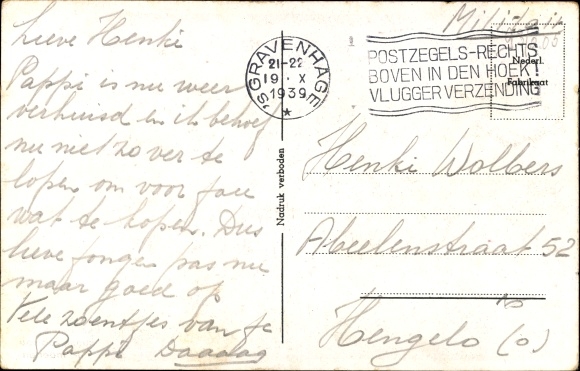 Lieve Henki
Pappi is nu weer
verhuisd en ik behoef
nu niet zo ver te
lopen om voor jou
wat te kopen. Dus
lieve jongen pas nu
maar goed op
Vele zoentjes van je
Pappi Daaaag
'S GRAVENHAGE
21-22
19 X
1939
POSTZEGELS-RECHTS
BOVEN IN DEN HOEK!
VLUGGER VERZENDING
Militair
Nederl.
Fabrikaat
Nadruk verboden
Henki Wolbers
Abeelenstraat 52
Hengelo (O)